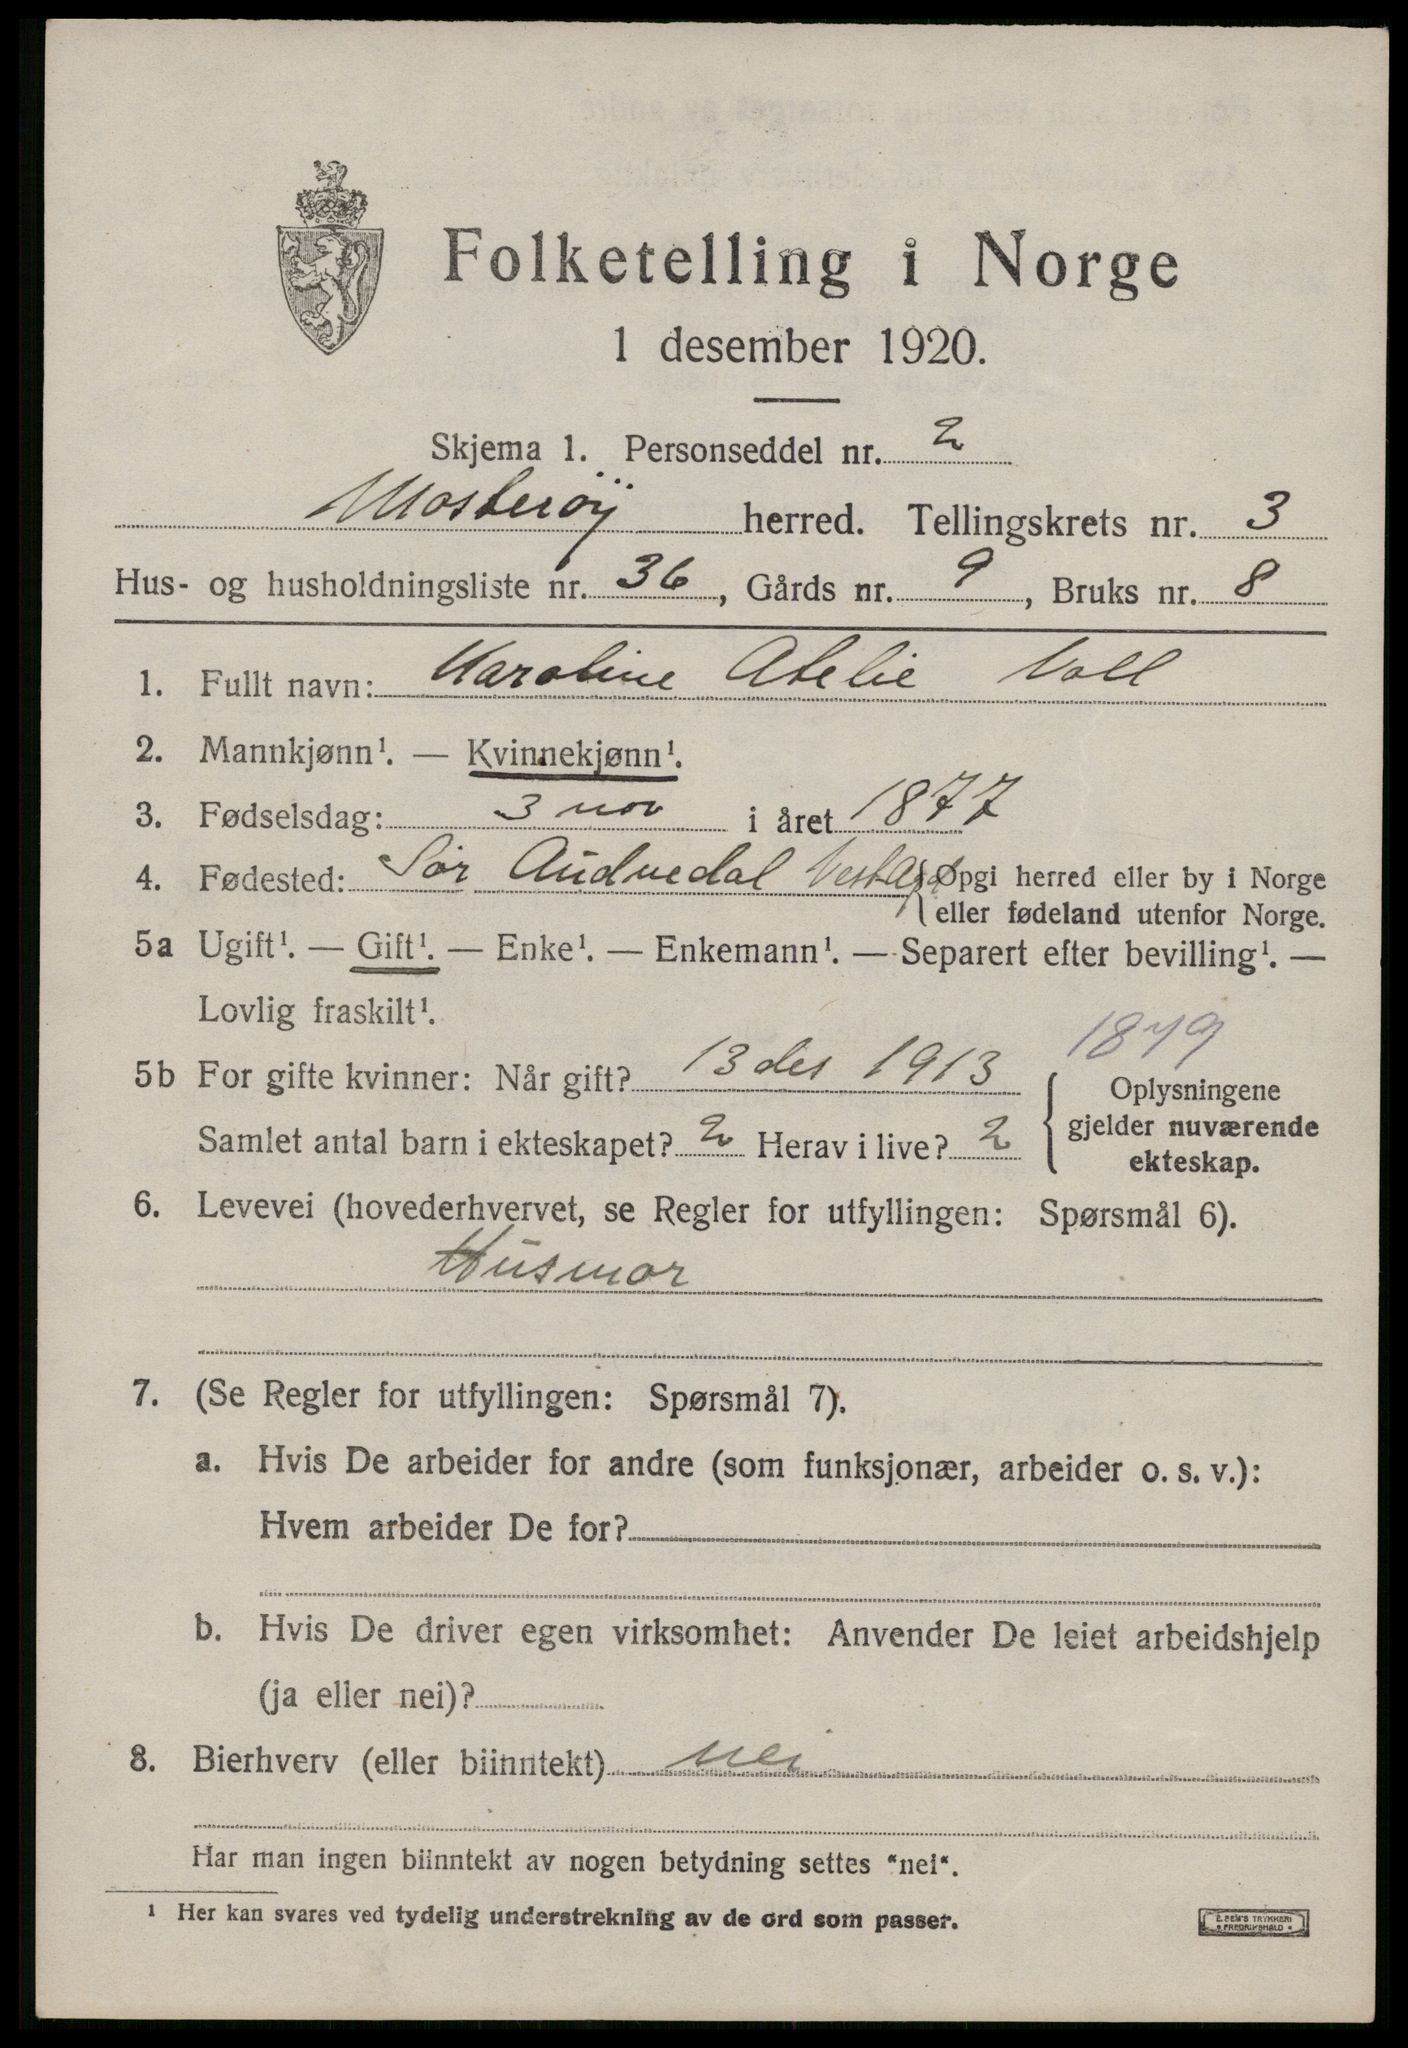 Folketelling i Norge
1 desember 1920.
Skjema 1. Personseddel nr. 2
Mosterøy herred. Tellingskrets nr. 3
Hus- og husholdningsliste nr. 36, Gårds nr. 9, Bruks nr. 8
1. Fullt navn: Karoline Atelie Voll
2. Mannkjønn¹. — Kvinnekjønn¹.
3. Fødselsdag: 3 nov i året 1877
4. Fødested: Sør Audnedal Opgi herred eller by i Norge
eller fødeland utenfor Norge.
5a Ugift¹. — Gift¹. — Enke¹. — Enkemann¹. — Separert efter bevilling¹. —
Lovlig fraskilt¹.
1879
5b For gifte kvinner: Når gift? 13 des 1913
Samlet antal barn i ekteskapet? 2 Herav i live? 2
Oplysningene
gjelder nuværende
ekteskap.
6. Levevei (hovederhvervet, se Regler for utfyllingen: Spørsmål 6).
Husmor
7. (Se Regler for utfyllingen: Spørsmål 7).
a. Hvis De arbeider for andre (som funksjonær, arbeider o. s. v.):
Hvem arbeider De for?
b. Hvis De driver egen virksomhet: Anvender De leiet arbeidshjelp
(ja eller nei)?
8. Bierhverv (eller biinntekt) nei
Har man ingen biinntekt av nogen betydning settes "nei".
¹ Her kan svares ved tydelig understrekning av de ord som passer.
E. SEM'S TRYKKERI
FREDRIKSHALD